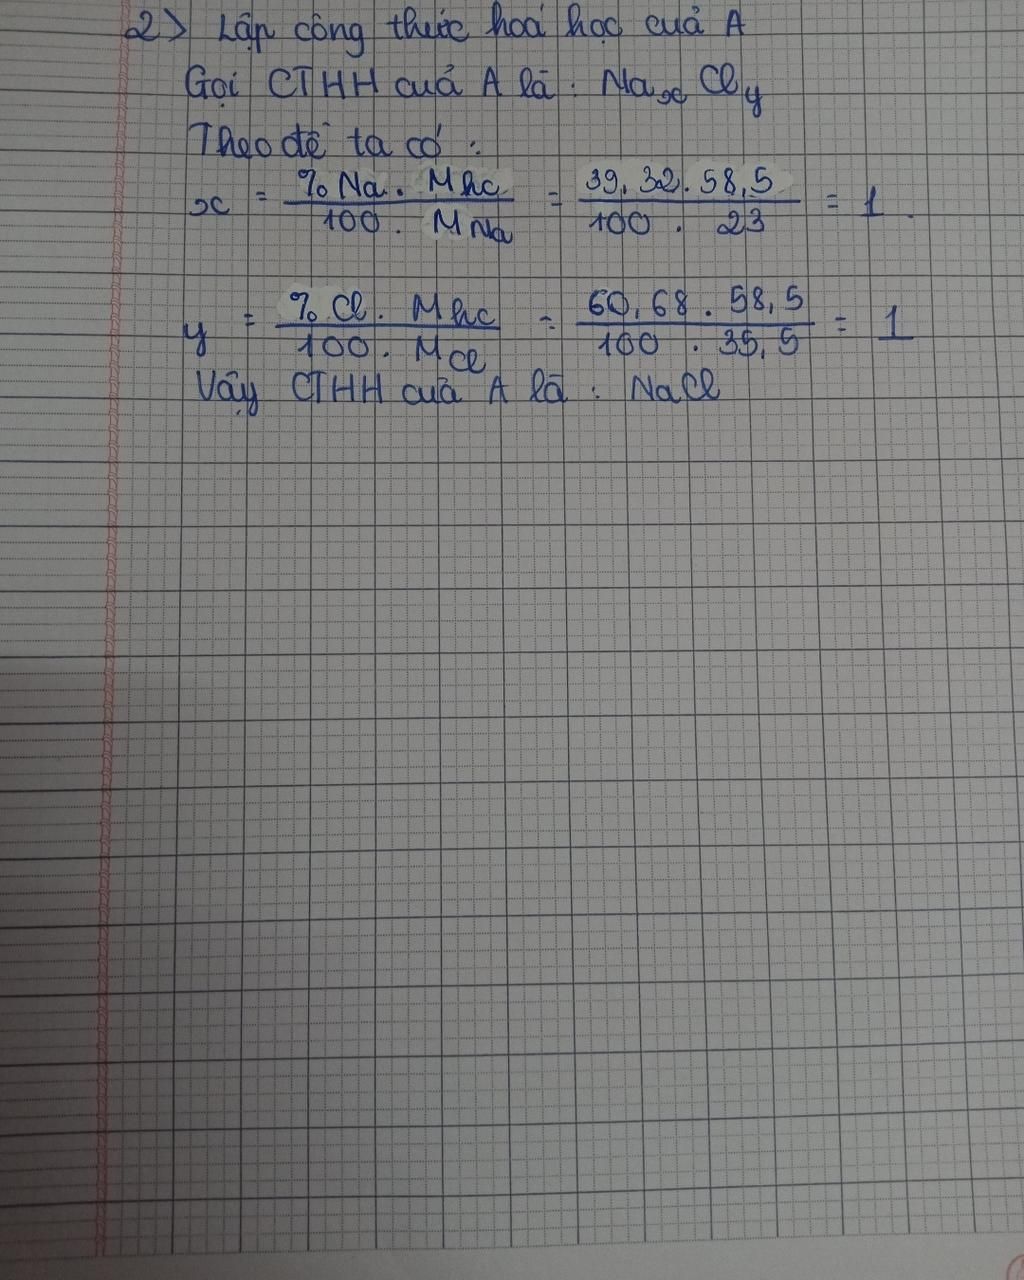 2> Lập công thức hoá học cuả A
Gọi CTHH cuả A là : NaxCly
Theo đề ta có :
x = %Na . Mhc / 100 . MNa = 39,32 . 58,5 / 100 . 23 = 1 .
y = %Cl . Mhc / 100 . MCl = 60,68 . 58,5 / 100 . 35,5 = 1
Vậy CTHH cuả A là : NaCl